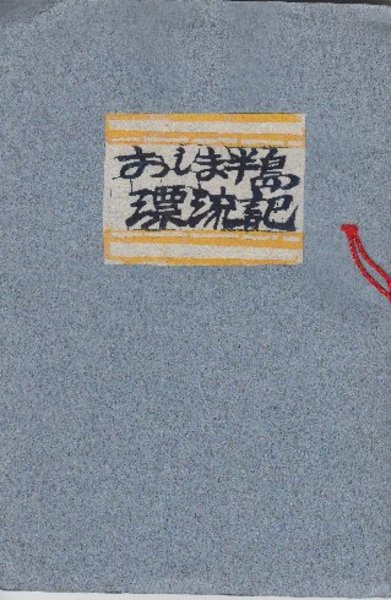 おしま半島
漂流記